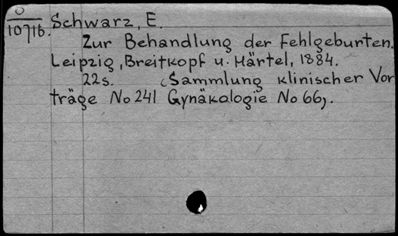 O
10716. Schwarz, E.
Zur Behandlung der Fehlgeburten.
Leipzig, Breitkopf u. Härtel, 1884.
22s. (Sammlung klinischer Vor
träge No 241 Gynäkologie No 66).